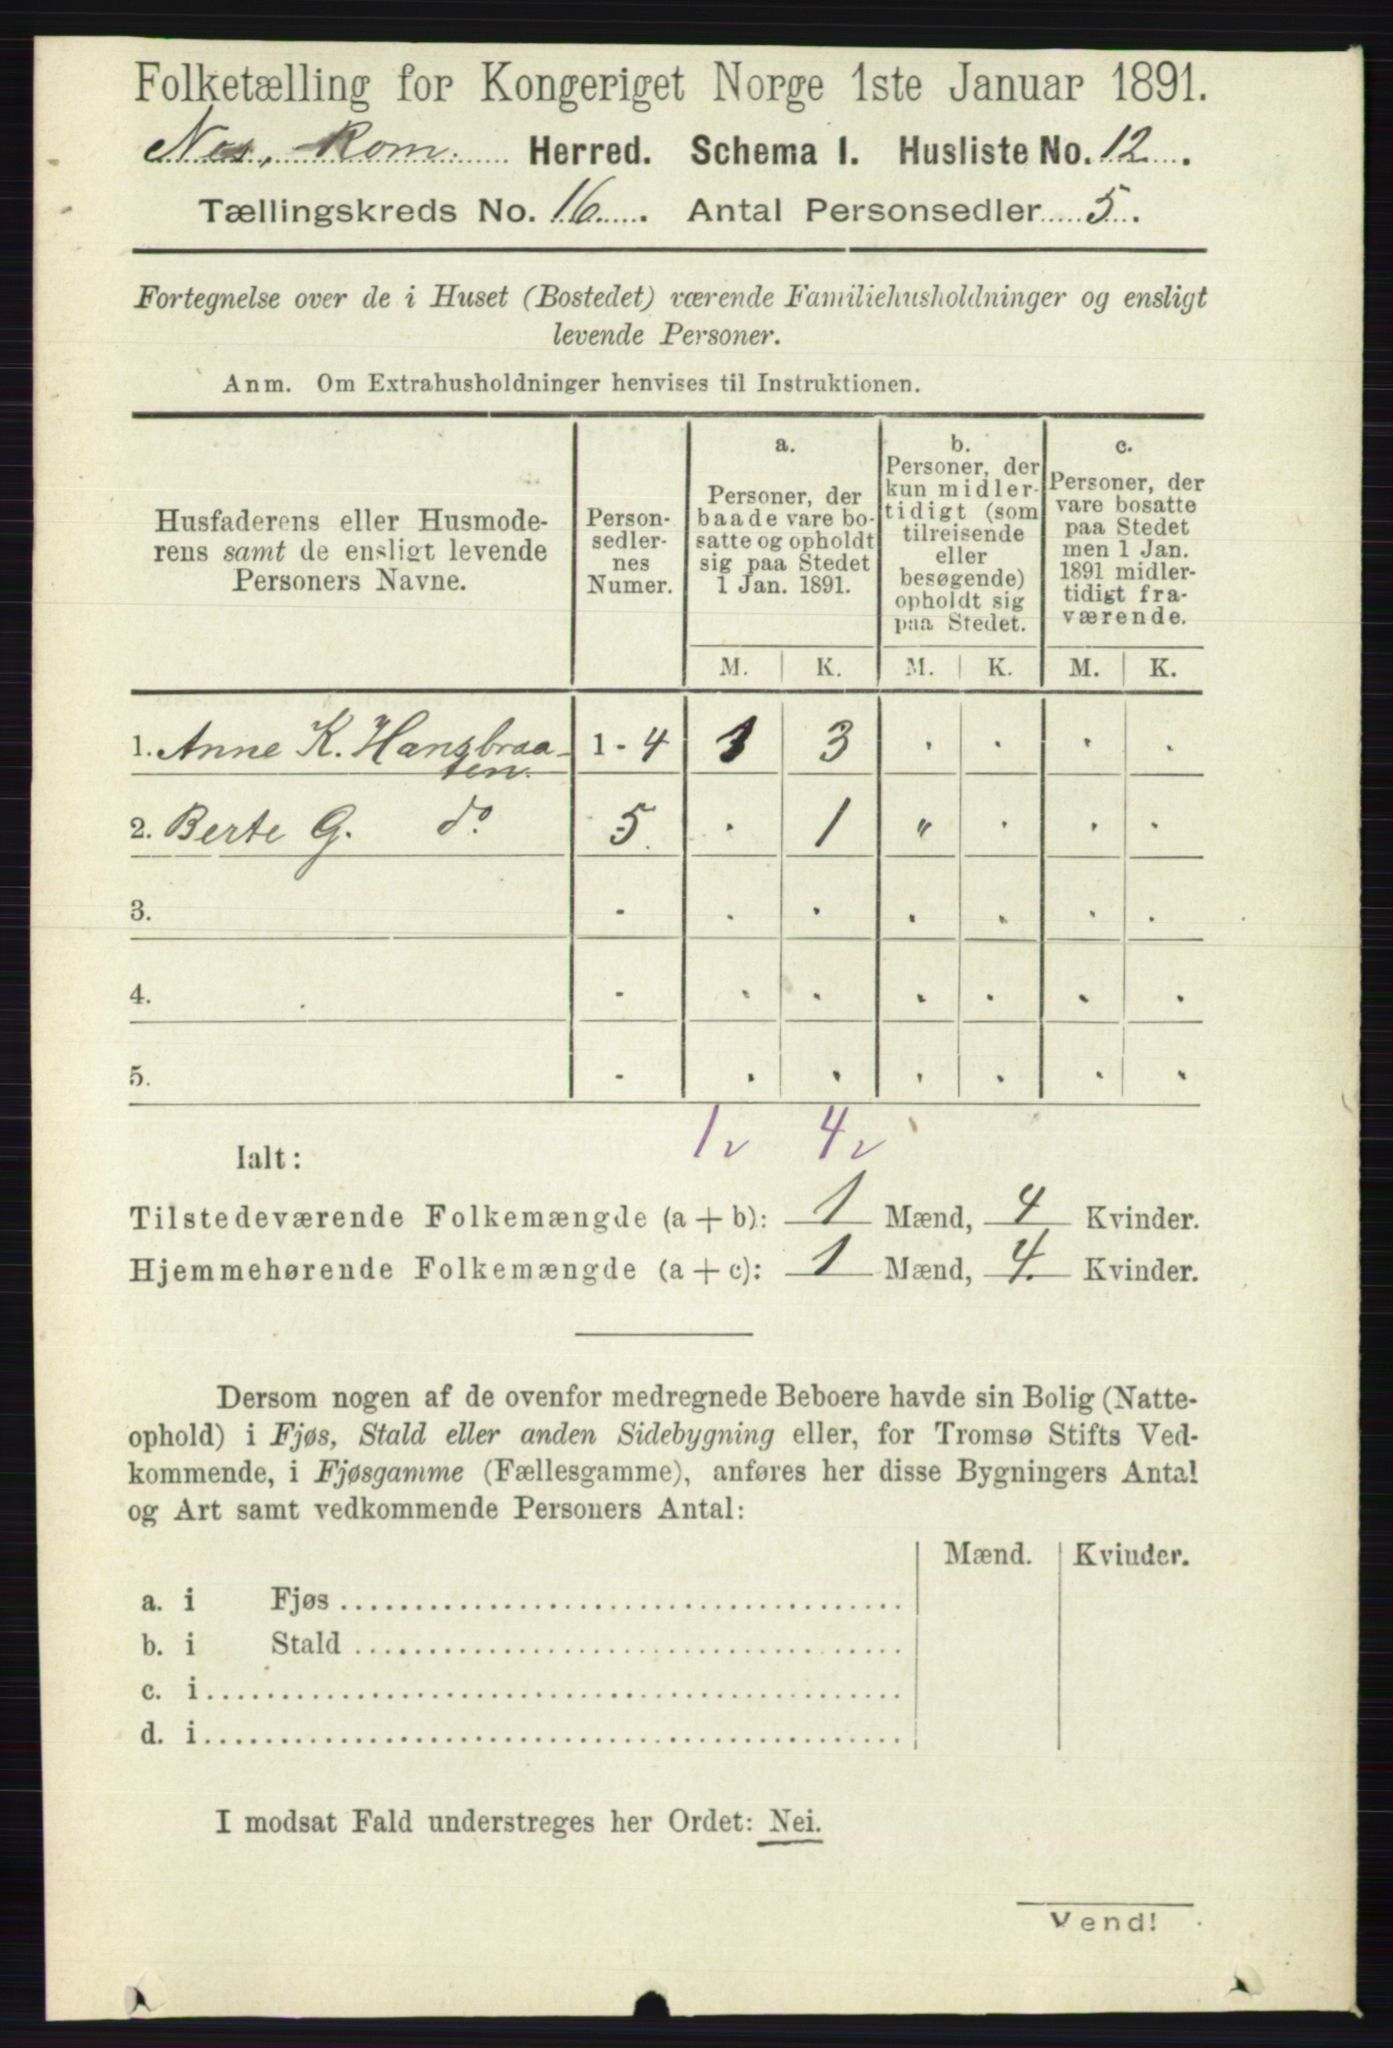 Folketælling for Kongeriget Norge 1ste Januar 1891.
Nes, Rom. Herred. Schema I. Husliste No. 12
Tællingskreds No. 16 Antal Personsedler 5
Fortegnelse over de i Huset (Bostedet) værende Familiehusholdninger og ensligt
levende Personer.
Anm. Om Extrahusholdninger henvises til Instruktionen.
Husfaderens eller Husmode-
rens samt de ensligt levende
Personers Navne.
Person-
sedler-
nes
Numer.
a.
Personer, der
baade vare bo-
satte og opholdt
sig paa Stedet
1 Jan. 1891.
b.
Personer, der
kun midler-
tidigt (som
tilreisende
eller
besøgende)
opholdt sig
paa Stedet.
c.
Personer, der
vare bosatte
paa Stedet
men 1 Jan.
1891 midler-
tidigt fra-
værende.
M. K. M. K. M. K.
1. Anne K. Hansbraa- 1 - 4 1 3 . . . .
ten.
2. Berte G. do 5 . 1 " . . .
3. - . . . . . .
4. - . . . . . .
5. - . . . . . .
1 v 4 v
Ialt:
Tilstedeværende Folkemængde (a + b): 1 Mænd, 4 Kvinder.
Hjemmehørende Folkemængde (a + c): 1 Mænd, 4. Kvinder.
Dersom nogen af de ovenfor medregnede Beboere havde sin Bolig (Natte-
ophold) i Fjøs, Stald eller anden Sidebygning eller, for Tromsø Stifts Ved-
kommende, i Fjøsgamme (Fællesgamme), anføres her disse Bygningers Antal
og Art samt vedkommende Personers Antal:
Mænd. Kvinder.
a. i Fjøs
b. i Stald
c. i
d. i
I modsat Fald understreges her Ordet: Nei.
Vend!